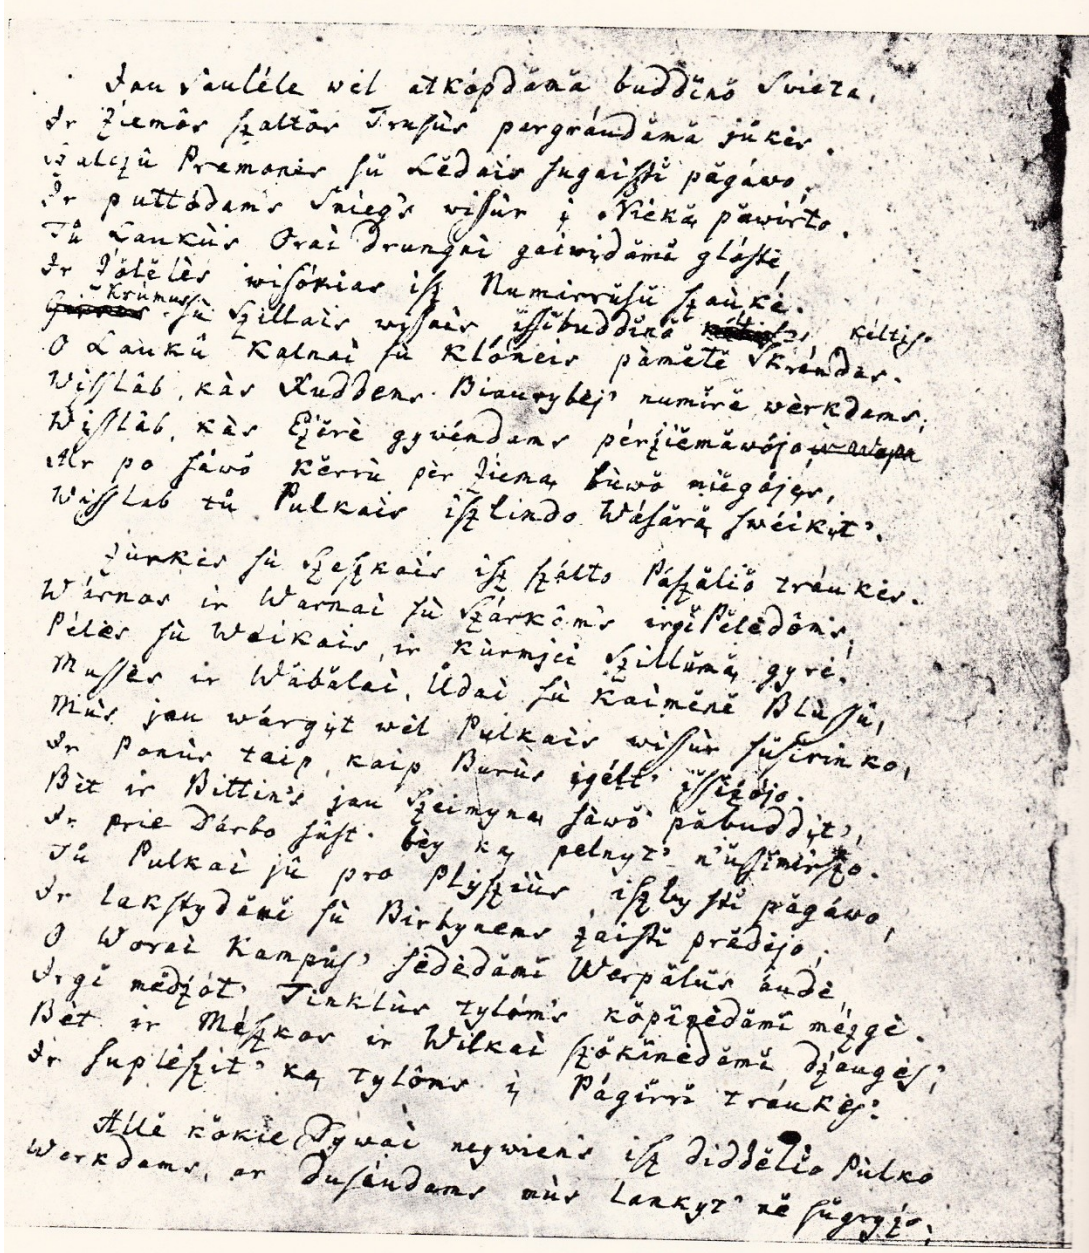 Jau Sauléle wėl atkópdămă buddĭnŏ Swieta,
Ir Źiemôs ſzaltôs Truſùs pargráudămă jůkės.
Szalcźû Pramonės ſŭ Lĕdais ſugaiſźti păgáwo,
Ir puttódams Snieg's wiſſùr į Niéką păwirto.
Tŭ Laukùs Oraì drungnì gaiwįdămĭ glóſtė,
Ir Źŏlĕlės wiſókias iſz Numirruſû ſzaùkė.
Krúmus ſù Szillais wiſſais iſſibuddĭnŏ kéltis.
O Laukû Kalnaì ſù Klóneis pàmĕtĕ Skrándas.
Wiſſláb, kàs Ruddens Biaurybėj' numĭrĕ wèrkdams,
Wiſſlàb, kàs Eźĕrè gywéndams pérźiĕmăwójo
Ar po ſáwŏ Kĕrrù pėr Źiemą bùwŏ miĕgójęs,
Wiſſlab tŭ Pulkais iſzlindo Wáſără ſwéikįt'.
Źurkės ſù Szeſzkais iſz ſzálto Páſzălĭŏ tráukės.
Wárnos ir Warnaì ſù Szárkôm's irgì Pĕlĕdôms,
Pélės ſù Waikais, ir Kùrmjei Szillŭmą gyrė.
Muſſės ir Wăbălaì, Ůdaì ſù Kaimĕnĕ Bluſſû,
Mùs jau wárgįt wėl Pulkais wiſſùr ſùſirinko,
Ir Ponùs taip, kaip Burùs įgélt' iſſiźójo.
Bèt ir Bittin's jau Szeimyną ſàwŏ păbuddįt',
Ir prie Dárbo ſiųſt' bèy ką pelnyt' n'uſſimirſzo.
Tŭ Pulkaì jû pro Plyſzùs iſzlyſti păgáwo,
Ir lakſtydămĭ ſù Birbynems źaiſti prădėjo,
O Woraì Kampùſ' ſėdėdămĭ Werpălŭs áudė,
Irgì mĕdźót' Tinklùs tylóm's kŏpinĕdămĭ mézgė.
Bèt ir Méſzkos ir Wilkaì ſzŏkĭnĕdămĭ dźaugės,
Ir ſuplĕſzįt' ką tylôms į Págĭrrĭ tráukės.
Allĕ kŏkie Dywaì neywiens iſz diddĕlio Pùlko
Werkdams, ar Duſáudams mùs lankyt' nĕ ſŭgryźo,